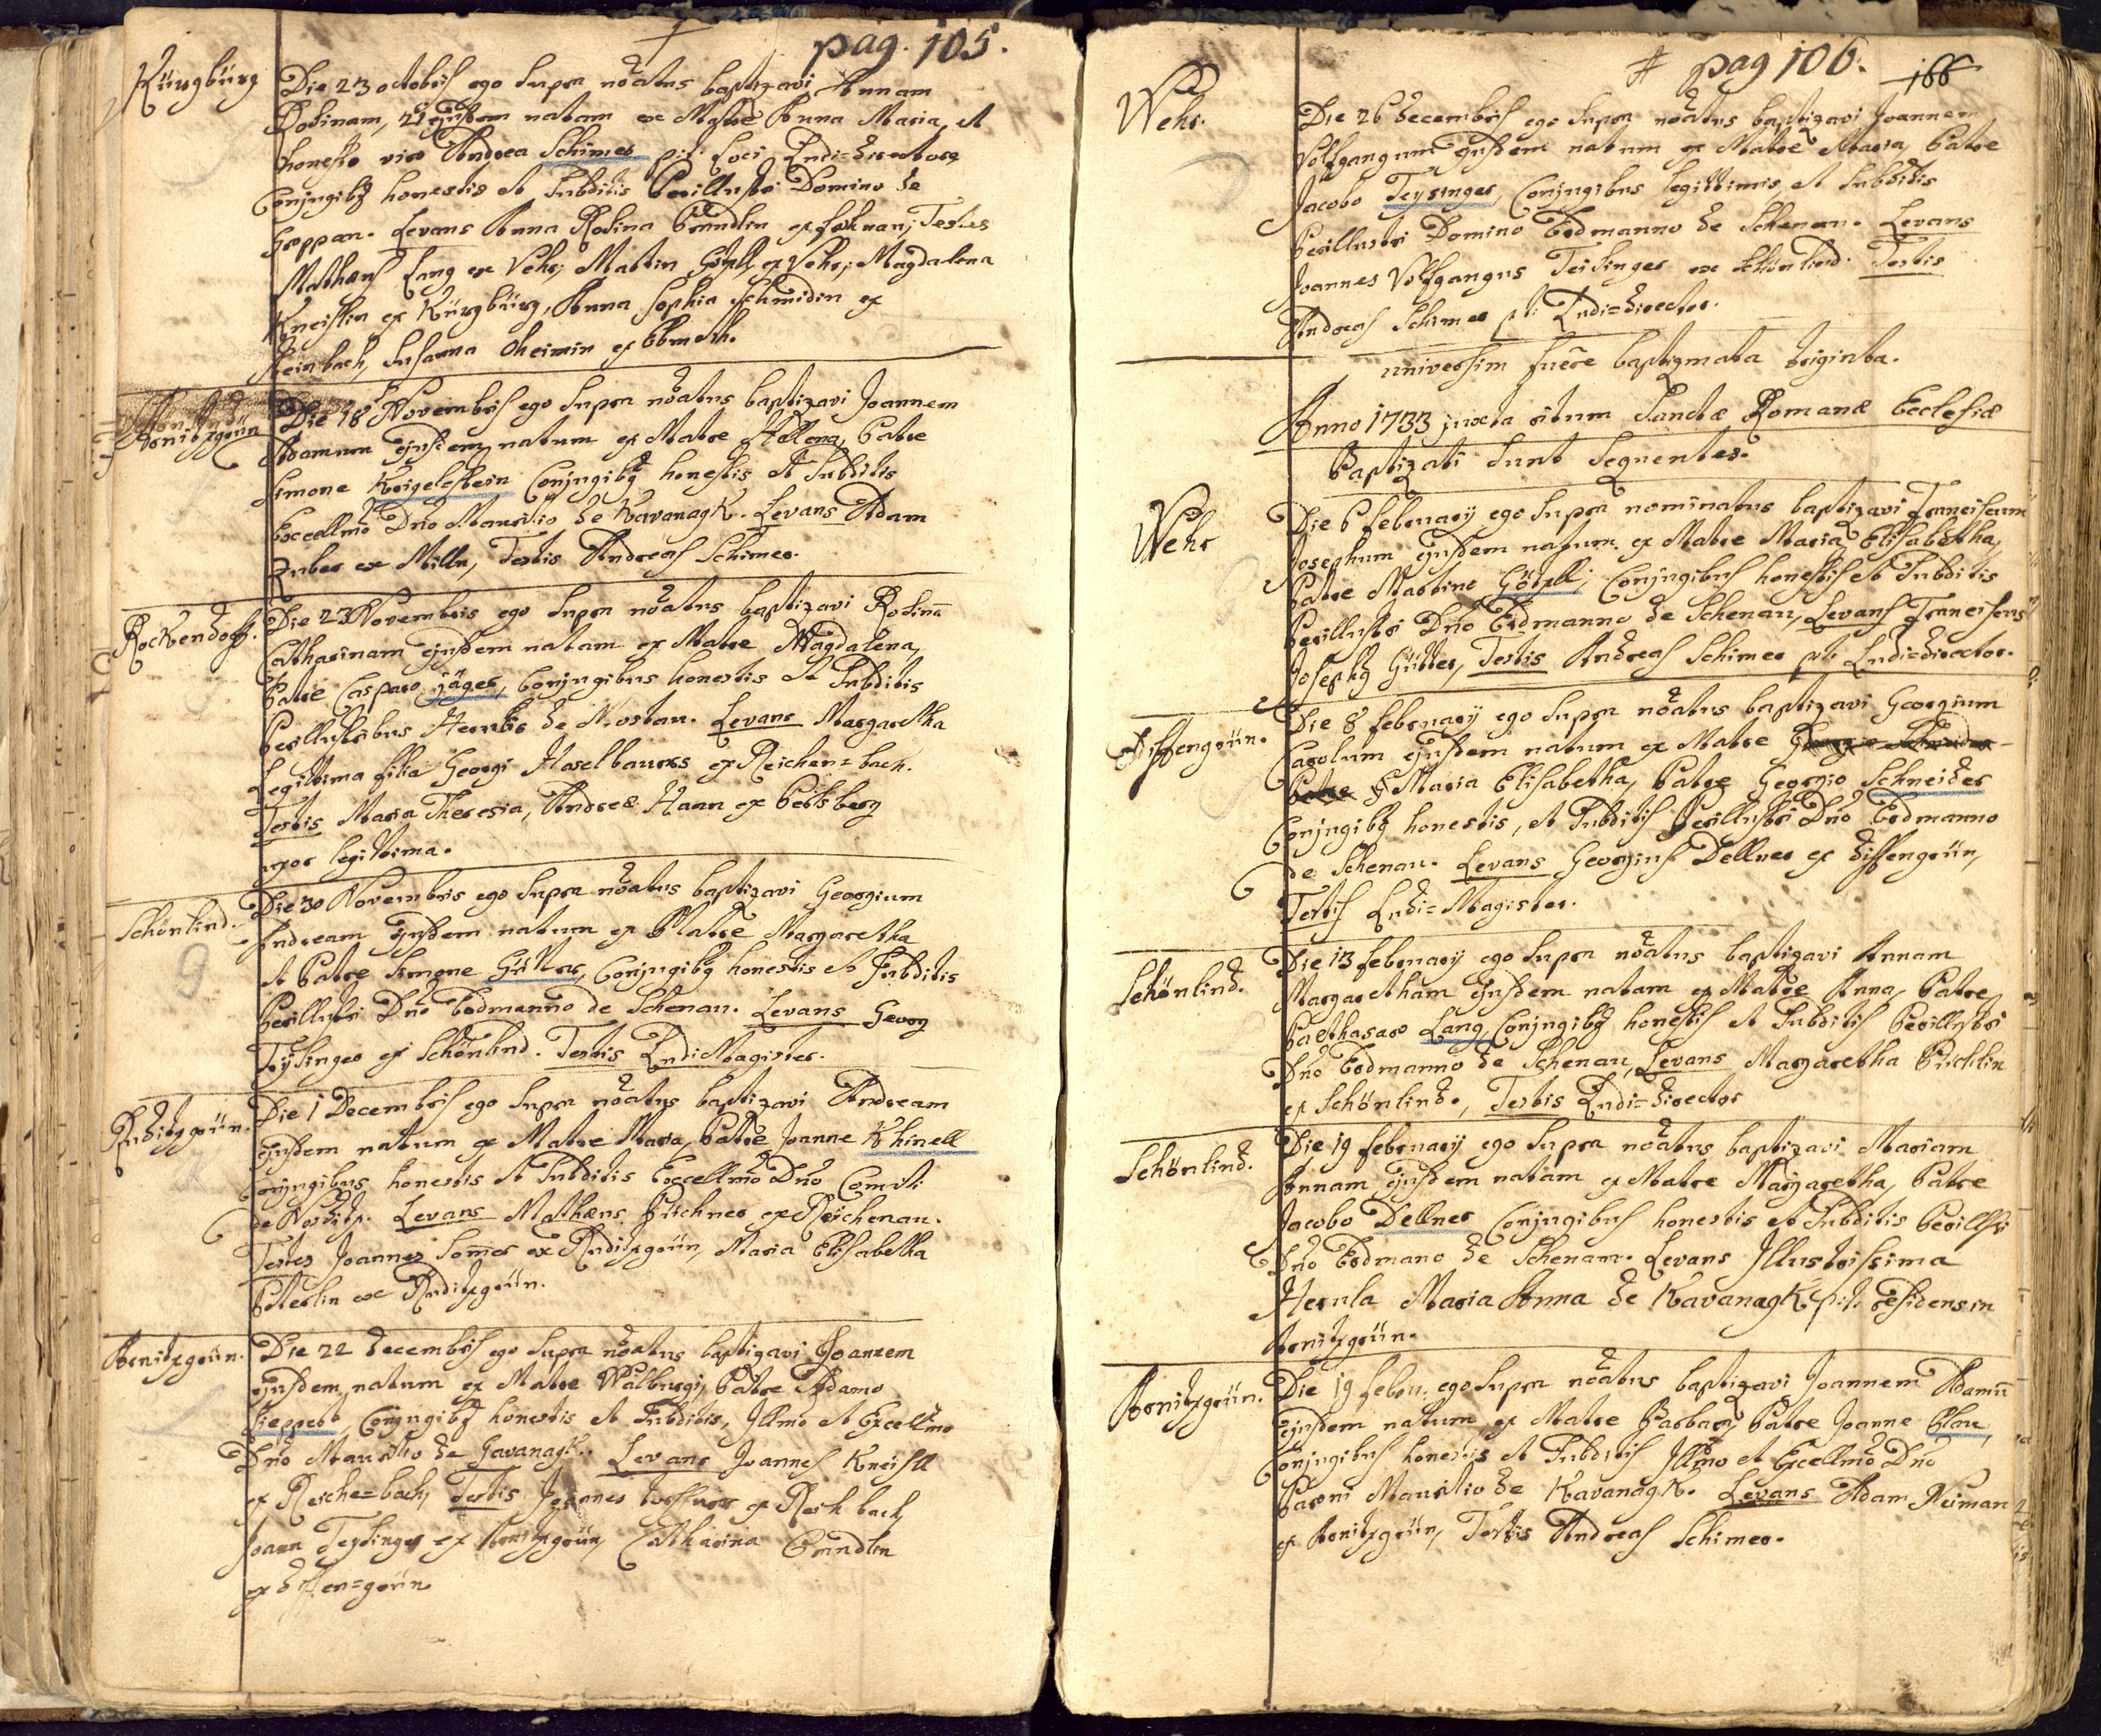 pag. 105.
Kürgbürg
Die 23 octobris ego supra nõatus baptizavi Annam
Rosinam, 21 ejusdem natam ex Matre Anna Maria, et
honesto viro Andrea Schimer p.t. Loci Ludi=directore
Conjugibq honestis et Subditis Perillustri Domino de
Levans Anna Rosina Brundlin ex Testes
Mathæus Lang ex Vehr, Martin Götzll ex Vehr, Magdalena
Kneislin ex Kürgbürg, Anna Sophia Schmidin ex
Steinbach, Susanna Oheimin ex Ebmeth.
Arnitzgrün
Die 18 Novembris ego supra nõatus baptizavi Joannem
Adamum ejusdem natum ex Matre Hellena, Patre
Simone Krigelstein Conjugibq honestis et Subditis
Excellmo Dño Mauritio de Kavanagk. Levans Adam
Zuber ex Milln, Testis Andreas Schimer.
Rockendorff.
Die 23 Novembris ego supra nõatus baptizavi Rosinã
Catharinam ejusdem natam ex Matre Magdalena,
Patre Casparo Jäger, Conjugibus honestis et Subditis
Perillustribus de Levans Margaretha
Legittima filia Georgi Haselbauers ex Reichen=bach.
Testis Maria Theresia, Andreæ Hann ex Perlsberg
uxor legittima.
Schönlind.
Die 30 Novembris ego supra nõatus baptizavi Georgium
Andream ejusdem natum ex Matre Margaretha
et Patre Simone Güttler, Conjugibq honestis et Subditis
Perillustri Dño Erdmanno de Schenau. Levans Georg
Teysinger ex Schönlind. Testis Ludi Magister.
Ruditzgrün.
Die 1 Decembris ego supra nõatus baptizavi Andream
ejusdem natum ex Matre Maria, Patre Joanne Khinell
Conjugibus honestis et Subditis Excellmo Dño Comiti
de Nostitz. Levans Mathæus Püchner ex Reichenau.
Testes Joannes Som̃er ex Ruditzgrün, Maria Elisabetha
Peterlin ex Ruditzgrün.
Arnitzgrün.
Die 22 decembris ego supra nõatus baptizavi Joannem
ejusdem natum ex Matre Walburgi, Patre Adamo
Lieppert, Conjugibq honestis et Subditis, Illmo et Excellmo
Dño Mauritio de Gavanagk. Levans Joannes Kneisll
ex Reiche=bach, Testis Joannes ex Reichbach,
Joann Teysinger ex Arnitzgrün, Catharina Brundlin
ex diffen=grün.
pag 106.
166
Wehr.
Die 26 decembris ego supra nõatus baptizavi Joannem
Volfgangum ejusdem natum ex Matre Maria, Patre
Jacobo Teysinger, Conjugibus legittimis, et Subditis
Perillustri Domino Erdmanno de Schenau. Levans
Joannes Volfgangus Teisinger ex Schönlind. Testis
Andreas Schimer p.t. Ludi=director.
universim fuere baptizmata triginta.
Anno 1733 juxta ritum Sanctæ Romanæ Ecclesiæ
Baptizati sunt Sequentes.
Wehr
Die 6 februarij ego supra nominatus baptizavi Franciscum
Josephum ejusdem natum ex Matre Maria Elisabetha,
Patre Martino Götzll, Conjugibus honestis et Subditis
Perillustri Dño Erdmanno de Schenau, Levans Franciscus
Josephq Güttler, Testis Andreas Schimer p.t. Ludi=director.
Diffengrün.
Die 8 februarij ego supra nõatus baptizavi Georgium
Carolum ejusdem natum ex Matre
Maria Elisabetha, Patre Georgio Schneider
Conjugibq honestis, et Subditis Perillustri Dño Erdmanno
de Schenau. Levans Georgius Dellner ex diffengrün,
Testis Ludi=Magister.
Schönlind.
Die 13 februarij ego supra nõatus baptizavi Annam
Margaretham ejusdem natam ex Matre Anna, Patre
Balthasaro Lang, Conjugibq honestis et Subditis Perillustri
Dño Erdmanno de Schenau, Levans Margaretha Püchlin
ex Schönlind., Testis Ludi=director
Schönlind.
Die 19 februarij ego supra nõatus baptizavi Mariam
Annam ejusdem natam ex Matre Margaretha, Patre
Jacobo Dellner Conjugibus honestis et Subditis Perillstri
Dño Erdmano de Schenau. Levans Illustrissima
Herula Maria Anna de Kavanagk p.t. residens in
Arnitzgrün.
Arnitzgrün.
Die 19 febru. ego supra nõatus baptizavi Joannem Adamũ
ejusdem natum ex Matre Barbara, Patre Joanne Blau,
Conjugibus honestis et Subditis Illmo et Excellmo Dño
Baroni Mauritio de Kavanagk. Levans Adam Neiman
ex Arnitzgrün, Testis Andreas Schimer.